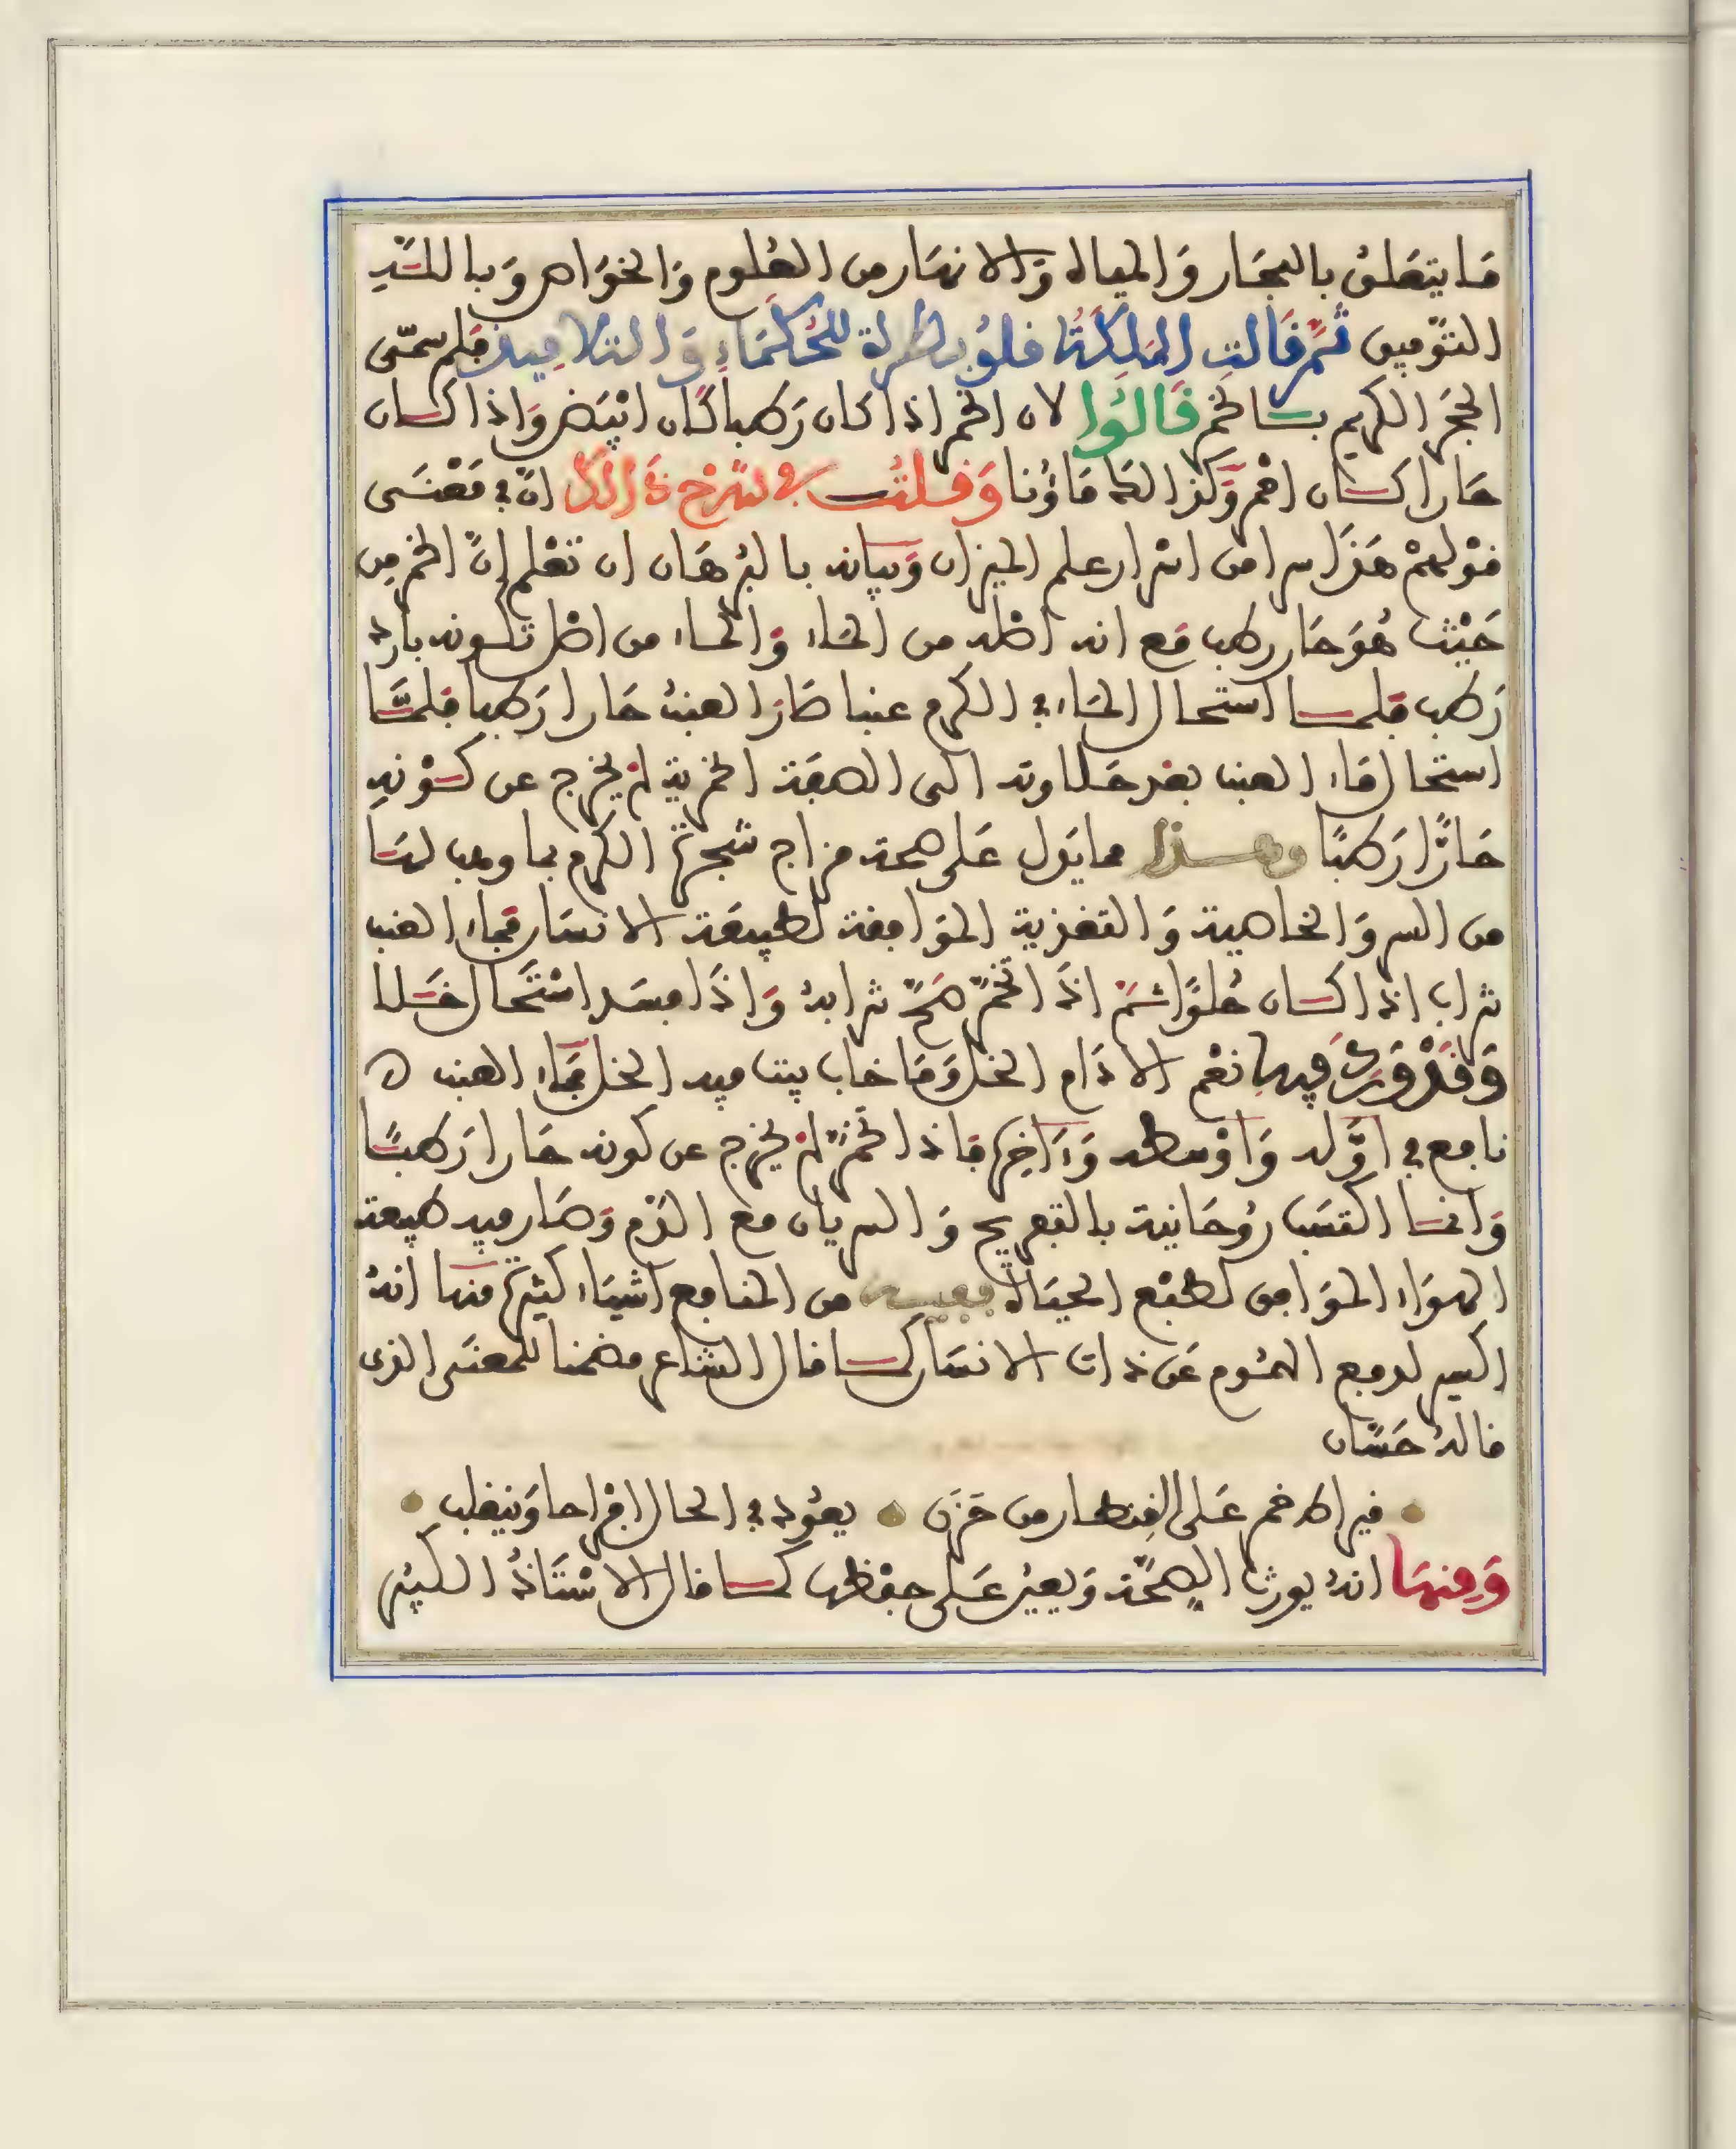 مَا يتعَلق بالبحَار وَالمياه وَالانهَار من العُلوم وَالخوَاص وَبالله
التوفيق ثمّ قَالت المَلِكَةُ قلوبطرة للحُكمَاءِ وَالتلاميذ فلم سمّى
الحجَر الكريم بالخمر قَالُوا لان الخمر اذا كان رَطبا كان ابْيَض وَاذا كان
حَارا كان احمر وَكذالك مَاؤُنا وَقلتُ في شرْح ذَالك انّ في مَعْنَى
قوْلهمْ هَذَا سرا من اسْرار علم الميزان وَبيانه بالبُرهَان ان تعْلم انّ الخمر مِن
حَيْث هُوَ حَار رطب مَع انه اصله من المَاء وَالماء من اصل تكونه بارد
رَطب فلما استحال المَاء في الكرم عنبا صَارَ العنبُ حَارا رَطبا فلمَّا
استحال مَاء العنب بعْد حَلاوته الى الصفة الخمرية لمْ يخرج عن كوْنهِ
حَارًّا رَطبًا وهذا مما يَدل عَلى صحة مزاج شجرة الكرم بما وهب لهَا
من السر وَالخاصية وَالتغذية الموَافقة لطبيعَة الانسَان فمَاء العنب
شراب اذا كان حُلوًا ثمّ اذَا تخمّر صَحّ شرابهُ وَاذَا فسَد اسْتحَال خَلا
وَقدْ وَرَدَ فيها نعْم الادَام الخل وَمَا خاب بيت فيه الخل فمَاء العنب
نافع في اوَّله وَاوْسطه وَءَاخِره فاذا تخمّر لمْ يخرج عن كونه حَارا رَطبًا
وَانما اكتسَب رُوحَانية بالتفريح وَالسريان مع الدّم وَصَار فيه طبيعة
الهوَاء الموَافق لطبْع الحيَاة ففيه من المنافع اشيَاء كثيرة منهَا انهُ
اكسير لدفع الهمُوم عَن ذات الانسَان كما قال الشاعر مضمنا للمعنَى الذى
قالهُ حَسَّان
قيراط خمر عَلى القِنطار من حَزَن يعُود في الحال افرَاحا وَينقلب
وَمِنهَا انهُ يورث الصِحّة وَيعين عَلى حِفْظها كما قال الاسْتَاذُ الكبير